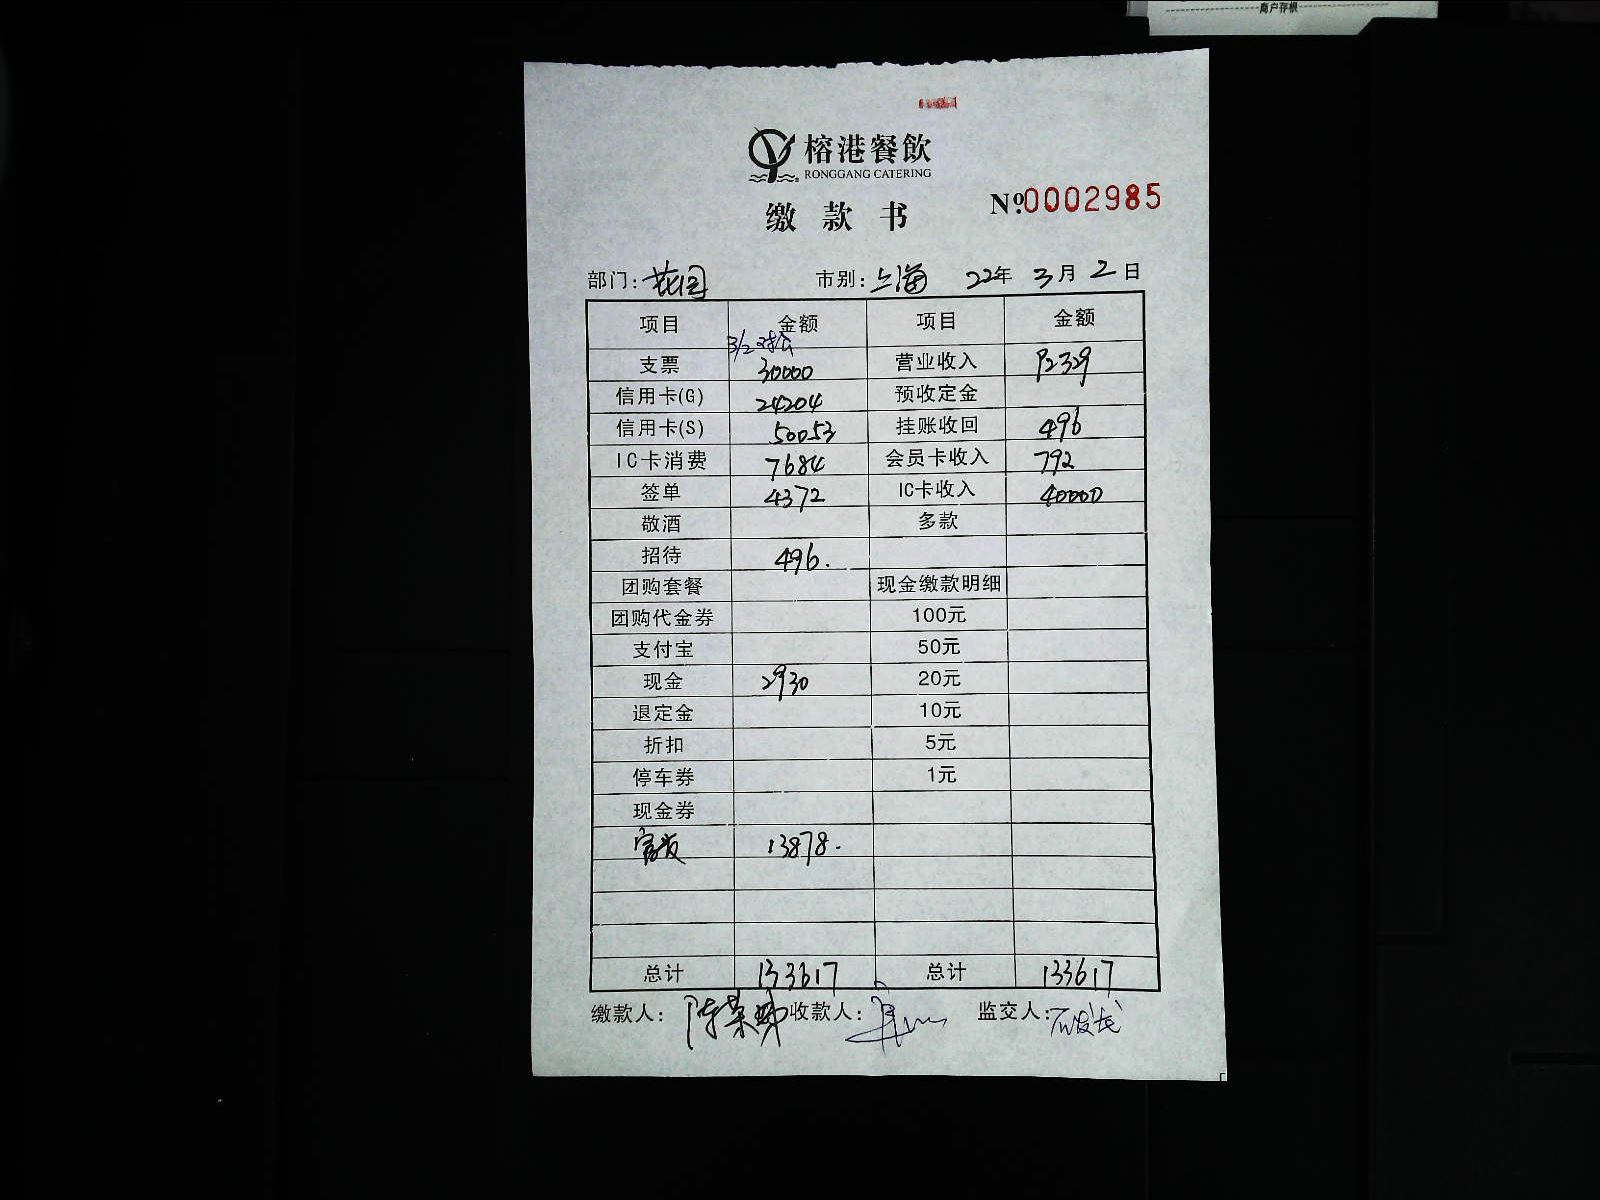 商户存根
榕港餐飲
RONGGANG CATERING
缴款书
Nº:0002985
部门:花园 市别:上海 22年 3月 2日
项目 金额 项目 金额
3/2 对公
支票 30000 营业收入 92329
信用卡(G) 24204 预收定金
信用卡(S) 50053 挂账收回 496
IC卡消费 7684 会员卡收入 792
签单 4372 IC卡收入 40000
敬酒 多款
招待 496.
团购套餐 现金缴款明细
团购代金券 100元
支付宝 50元
现金 2930 20元
退定金 10元
折扣 5元
停车券 1元
现金券
富友 13878.
总计 133617 总计 133617
缴款人: 收款人: 监交人: